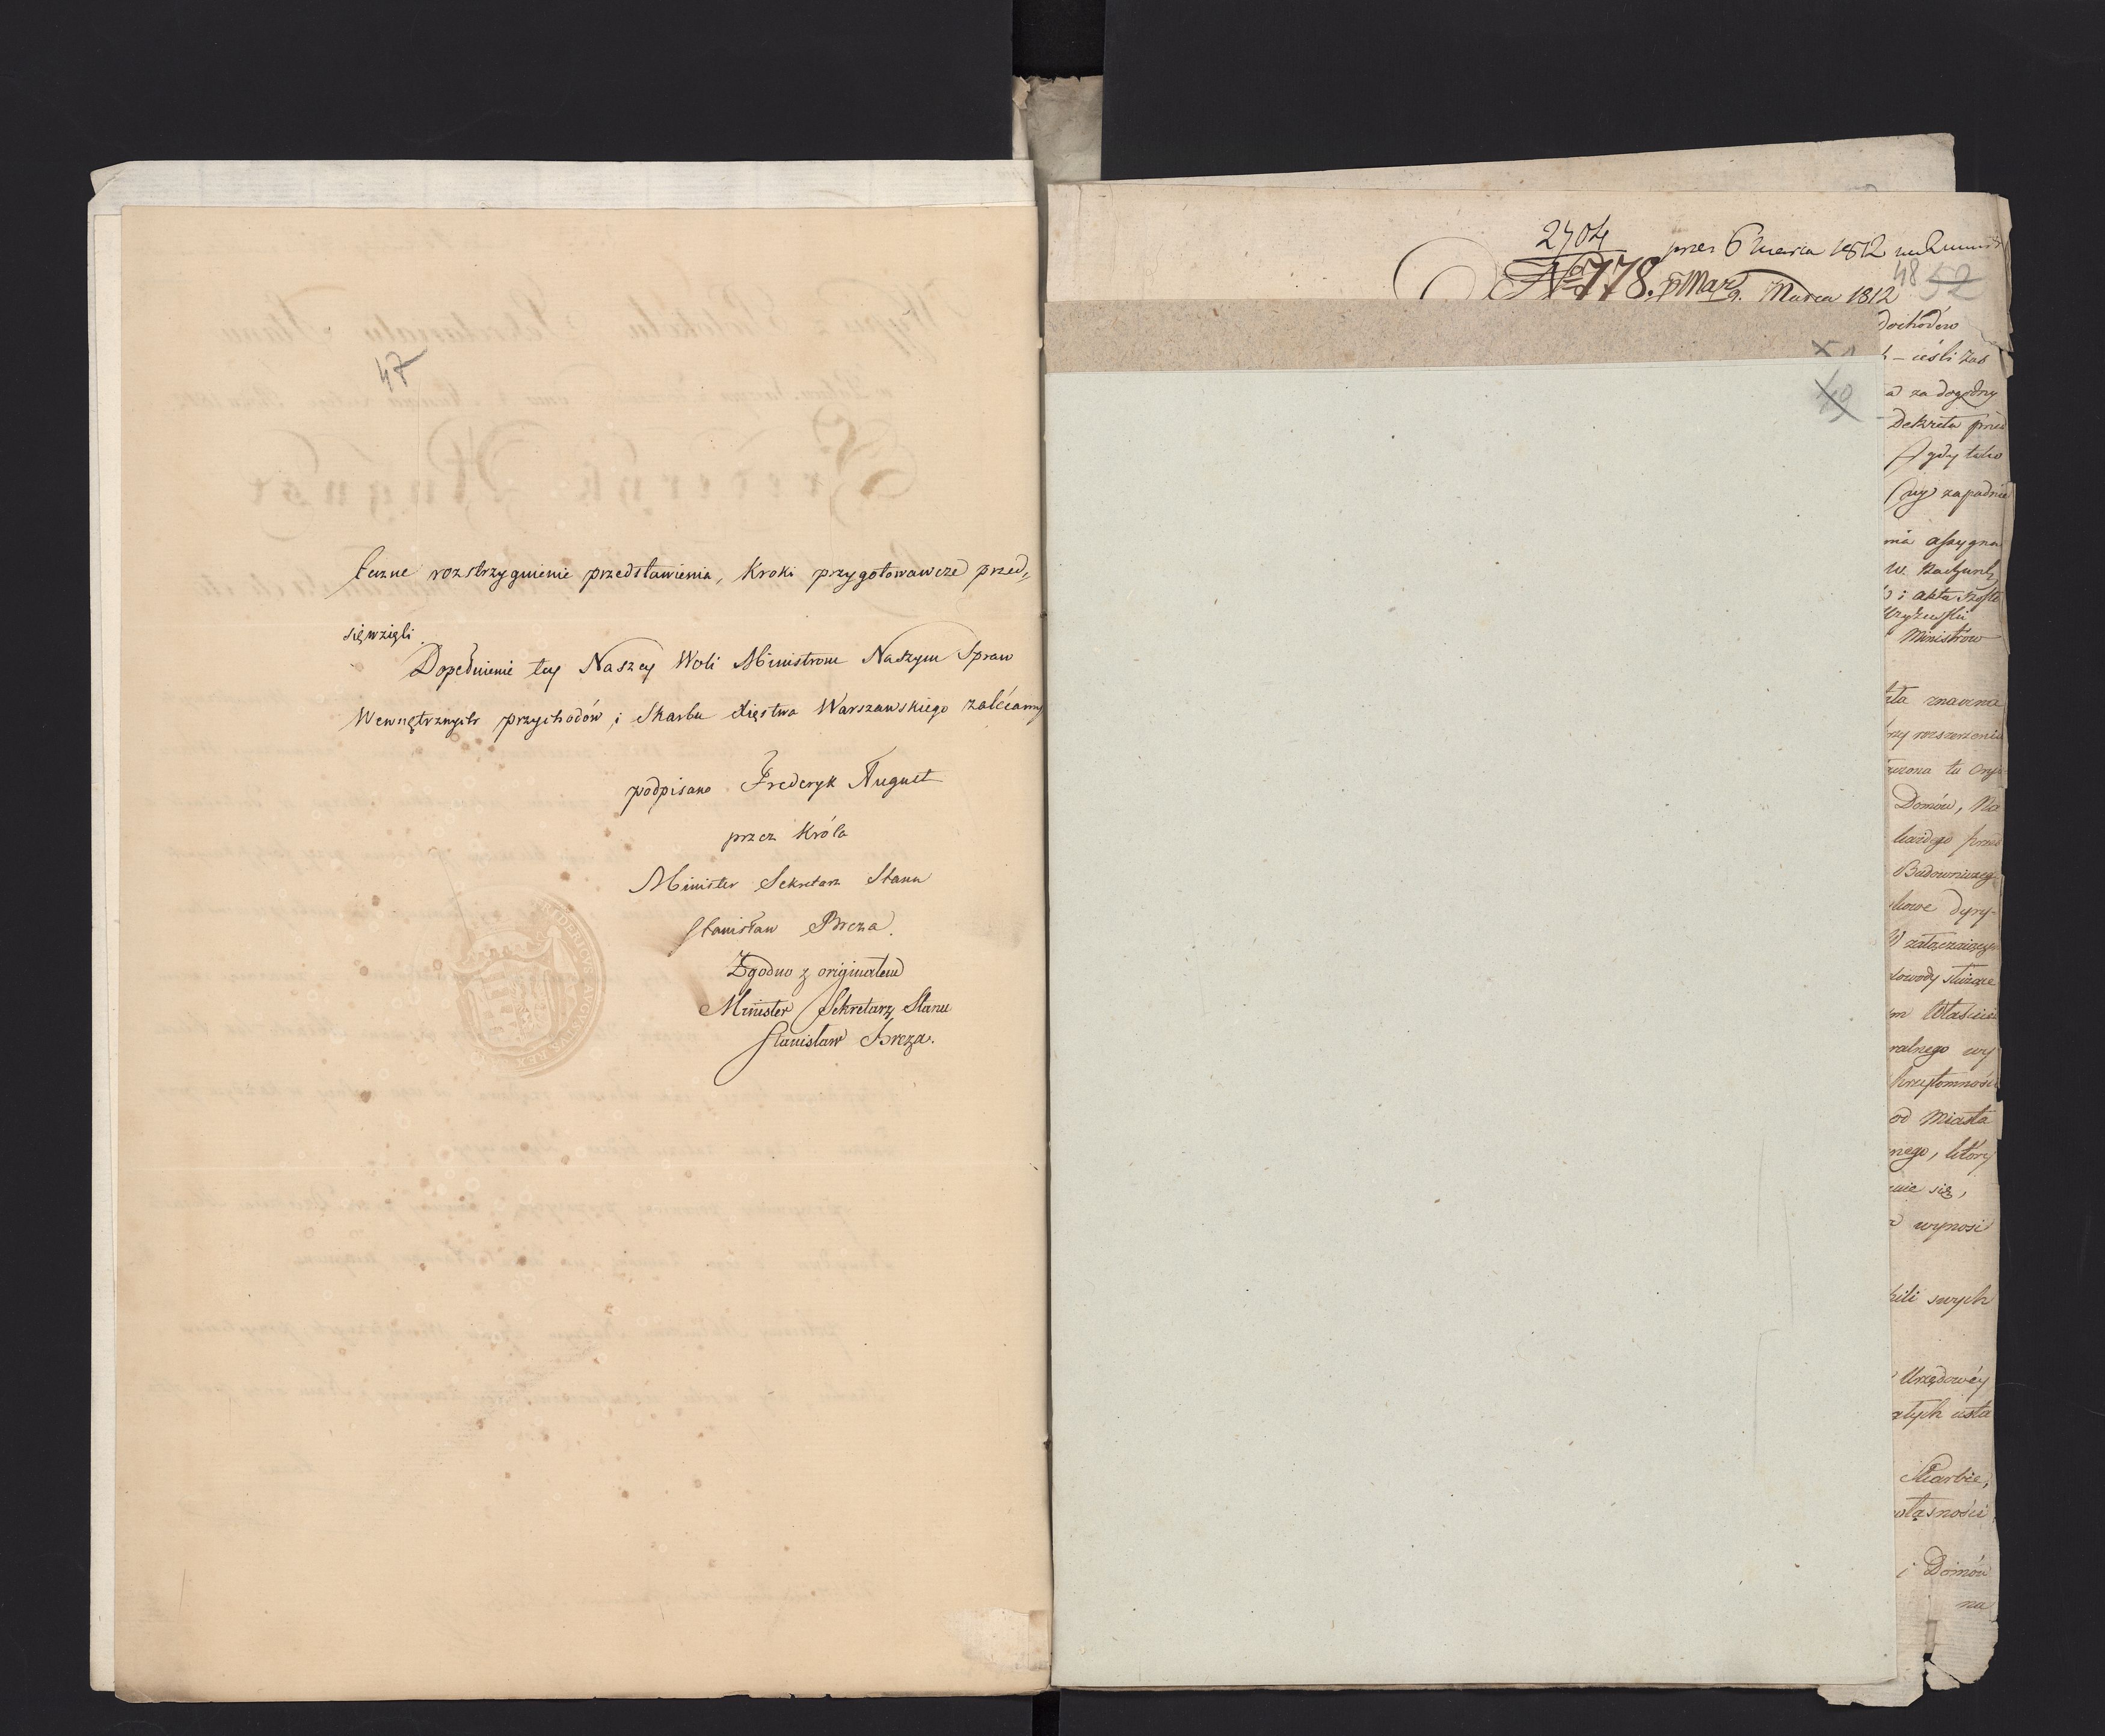 47
teczne rozstrzygnienie przedstawienia, Kroki przygotowawcze przed,
sięwzięli.
Dopełnienie tey Naszey Woli Ministrom Naszym Spraw
Wewnętrznych przychodów, i Skarbu Xięstwa Warszawskiego zalécamy
podpisano Frederyk August
przez Króla
Minister Sekretarz Stanu
Stanisław Breza.
Zgodno z originałem
Minister Sekretarz Stanu
Stanisław Breza.
FRIDERICVS AVGVSTVS REX
2704
6 Marca 1812
No 778. Marca 1812
48 52
49
dochodów
ieśli zas
za dogodny
Dekretu
gdy tako
zapadnie
assygna
w. Rachunk
i akta
Ministrów
znaczna
rozszerzenia
tu
Domów, Na
każdego przed
Budowniczeg
dyry-
służące
Właścici
ralnego wy
od Miasta
nego, który
się,
wynosi
swych
Urzędowéy
Skarbie,
własności
i Domów
na